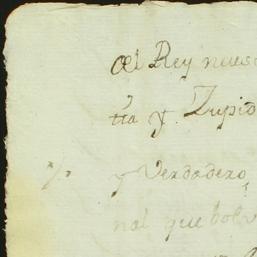 al Rey nues
tra y Zupid
y Verdadero
nal que bolv